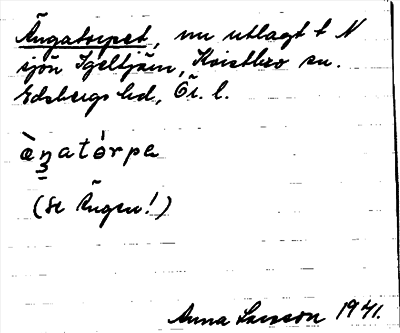 Ängatorpet, nu utlagt t N
sjön Igeltjärn, Kvistbro sn.
Edsbergs hd, Ör. l.
àŋatòrpa
(Se Ängen!)
Anna Larsson 1941.